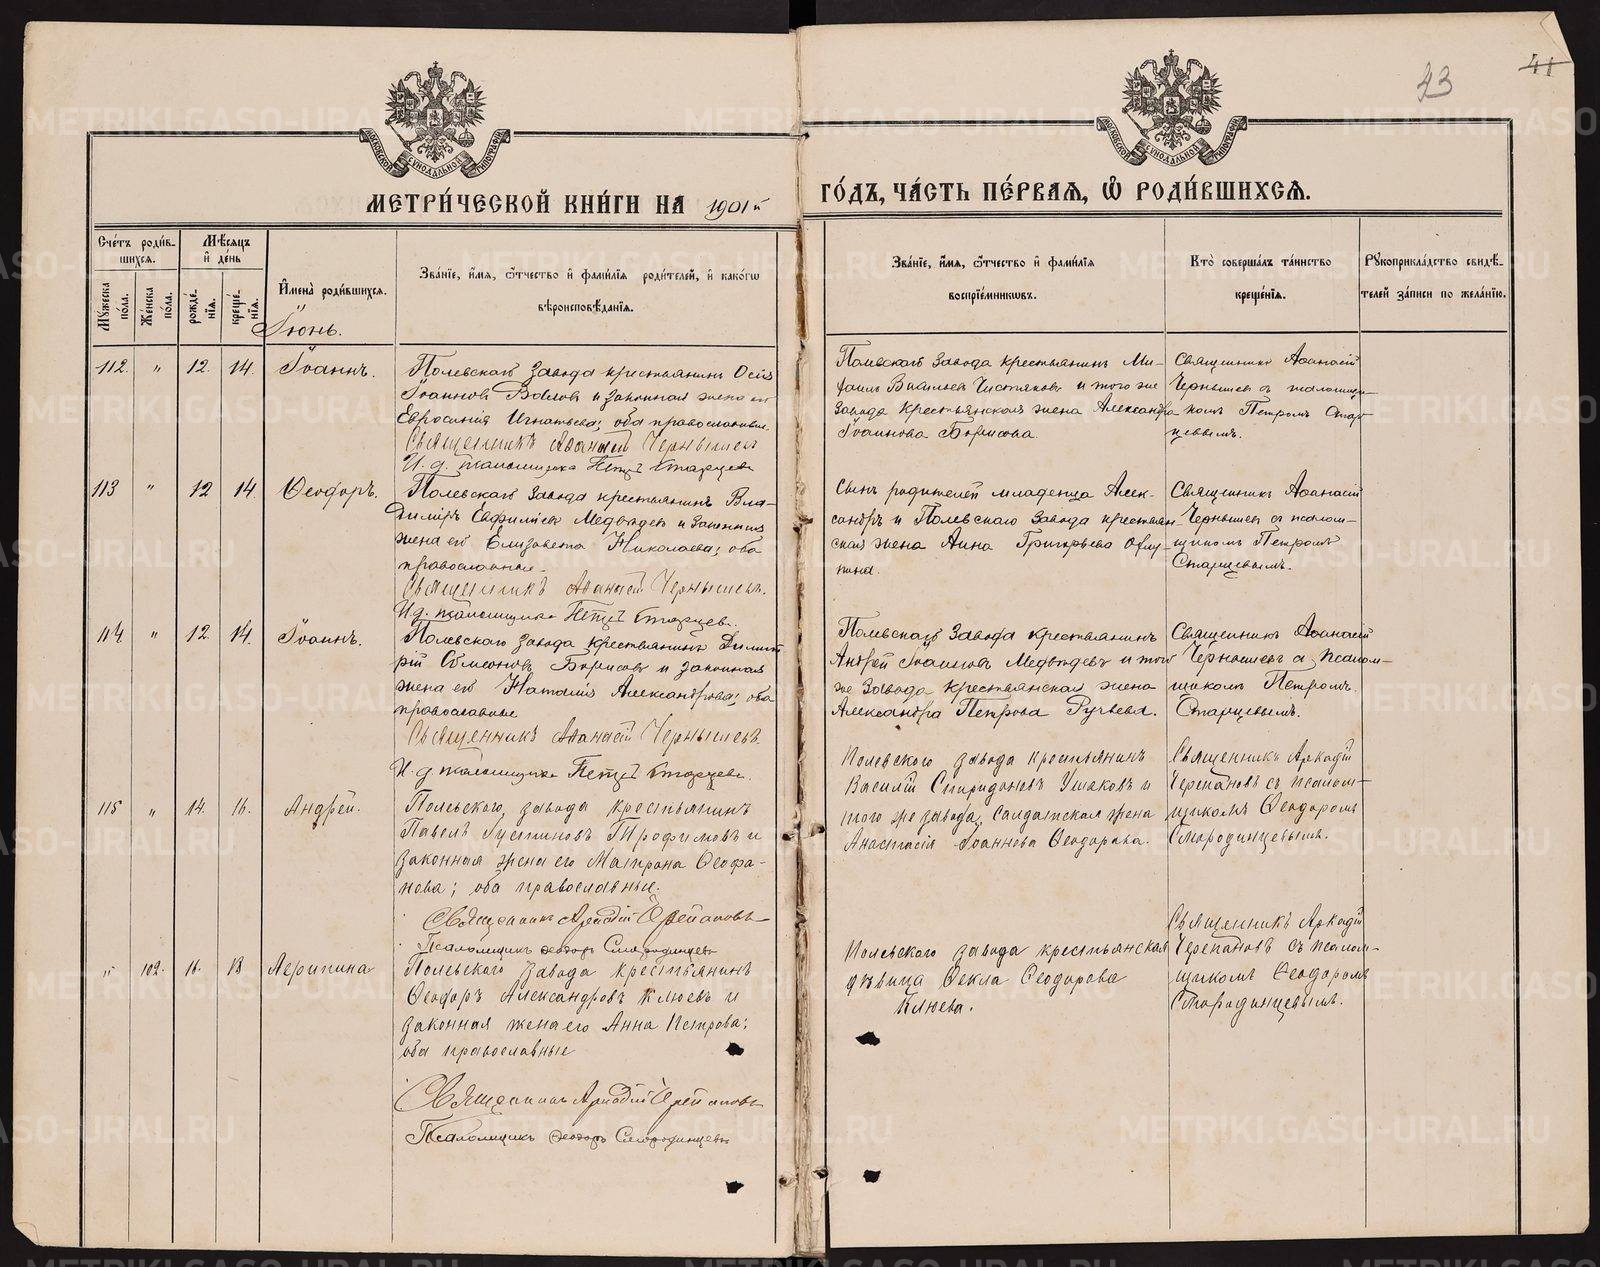 43
41
МЕТРИ́ЧЕСКОЙ КНИ́ГИ НА 1901й ГО́ДЪ, ЧА́СТЬ ПЕ́РВАѦ, Ѽ РОДИ́ВШИХСѦ.
Сче́тъ роди́в-
шихся.
Мѣ́сяцъ
и҆ де́нь
Му́жеска
по́ла.
Же́нска
по́ла.
рожде́-
нїя.
креще́-
нїя.
И҆мена̀ роди́вшихся.
Зва́нїе, и҆́мя, ѻ҆́тчество и҆ фами́лїя роди́телей, и҆ како́гѡ
вѣроисповѣ́данїя.
Зва́нїе, и҆́мя, ѻ҆́тчество и҆ фами́лїя
воспрїе́мниковъ.
Кто̀ соверша́лъ та́инство
креще́нїя.
Рꙋкоприкла́дство свидѣ́-
телей за́писи по жела́нїю.
Іюнь.
112. " 12. 14. Іоаннъ.
Полевскаго завода крестьянинъ Осипъ
Іоанновъ и законная жена его
Евфросинія Игнатьева; оба православные.
Священникъ Аѳанасій Чернышевъ
И. д. псаломщика Петръ Старцевъ
Полевскаго завода крестьянинъ Ми-
хаилъ Васильевъ Чистяковъ и того же
завода крестьянская жена Александра
Іоаннова Борисова.
Священникъ Аѳанасій
Чернышевъ съ псаломщи-
комъ Петромъ Стар-
цевымъ.
113 " 12 14. Ѳеодоръ.
Полевскаго завода крестьянинъ Вла-
димиръ Евфиміевъ Медвѣдевъ и законная
жена его Елизавета Николаева; оба
православные.
Священникъ Аѳанасій Чернышевъ.
И. д. псаломщика Петръ Старцевъ.
Сынъ родителей младенца Алек-
сандръ и Полевскаго завода крестьян-
ская жена Анна Григорьева
Священникъ Аѳанасій
Чернышевъ съ псалом-
щикомъ Петромъ
Старцевымъ.
114. " 12. 14. Іоаннъ.
Полевскаго завода крестьянинъ Димит-
рій Симеоновъ Борисовъ и законная
жена его Наталія Александрова; оба
православные
Священникъ Аѳанасій Чернышевъ.
И. д. псаломщика Петръ Старцевъ.
Полевскаго завода крестьянинъ
Андрей Іоанновъ Медвѣдевъ и того
же завода крестьянская жена
Александра Петрова Ручьева.
Священникъ Аѳанасій
Чернышевъ съ псалом-
щикомъ Петромъ
Старцевымъ.
115 " 14. 16. Андрей.
Полевского завода крестьянинъ
Павелъ Іустиновъ Трофимовъ и
законная жена его Матрона Ѳеофа-
нова; оба православные.
Священникъ Аркадій Черепановъ
Псаломщикъ Ѳеодоръ Смородинцевъ
Полевского завода крестьянинъ
Василій Спиридоновъ Ушаковъ и
того же завода, солдатская жена
Анастасія Іоаннова Ѳеодорова.
Священникъ Аркадій
Черепановъ съ псалом-
щикомъ Ѳеодоромъ
Смородинцевымъ.
" 102. 16. 18 Агрипина
Полевского завода крестьянинъ
Ѳеодоръ Александровъ Клюевъ и
законная жена его Анна Петрова;
оба православные
Священникъ Аркадій Черепановъ
Псаломщикъ Ѳеодоръ Смородинцевъ
Полевского завода крестьянская
дѣвица Ѳекла Ѳеодорова
Клюева.
Священникъ Аркадій
Черепановъ съ псалом-
щикомъ Ѳеодоромъ
Смородинцевымъ.
METRIKI.GASO-URAL.RU